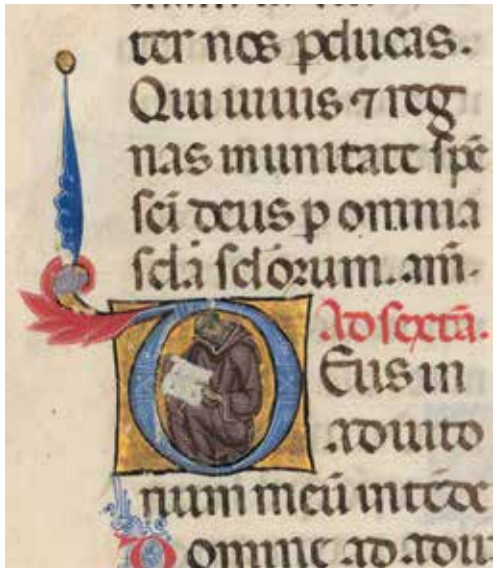 ter nos ꝑducas.
Qui uiuis ⁊ reg
nas in unitate
ſc̄i deus ꝑ omnia
ſcl̄a ſcl̄oꝛum. am̄.
Ad ſextā.
DEus in
adiuto
rium meū intēde
Domine ad adiu